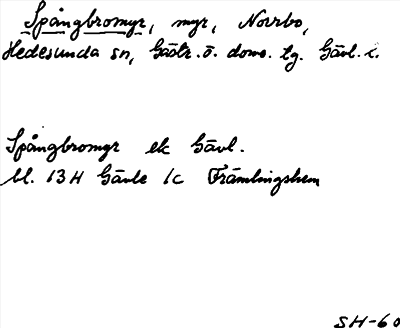 Spångbromyr, myr, Norrbo,
Hedesunda sn, Gästr. ö. doms. tg. Gävl. l.
Spångbromyr ek Gävl.
bl. 13H Gävle 1c Främlingshem
SH-60